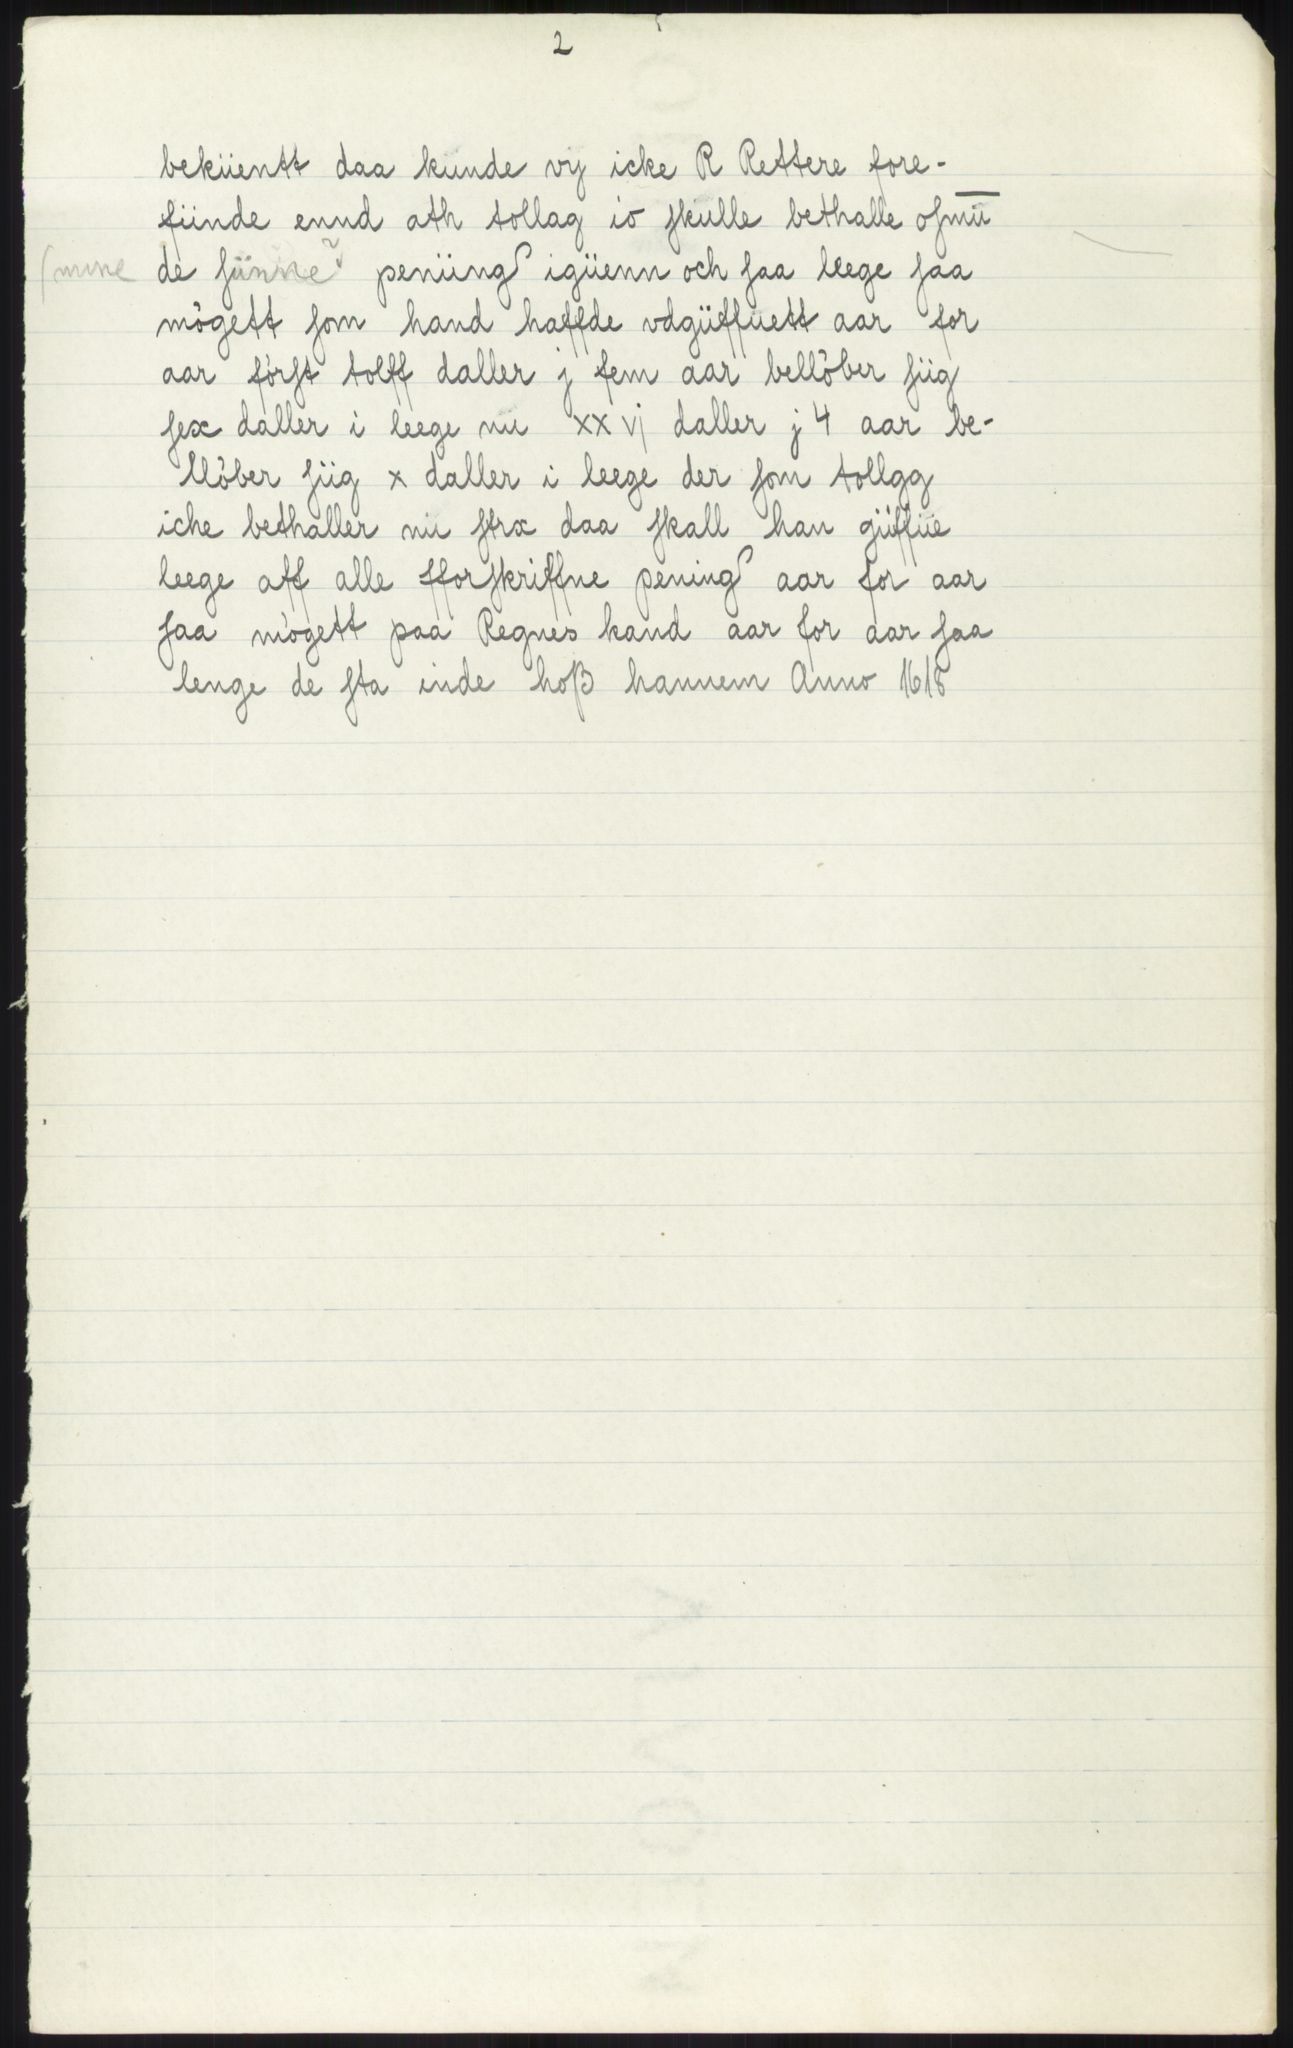 2
beküentt daa kunde vy icke R Rettere fore-
fiinde ennd ath tollag io skulle bethalle osmu̅
(mine de siinne peniing igüenn och saa leege saa
mögett som hand haffde vdgüffuett aar for
aar först tolff daller j fem aar bellöber siig
sex daller i leege nu xx vj daller j 4 aar be-
llöber siig x daller i leege der som tollgg
iche bethaller nu strx daa skall han güffue
leege aff alle fforskriffne pening aar for aar
saa mögett paa Regnes kand aar for aar saa
lenge de sta inde hoß hannem Anno 1618